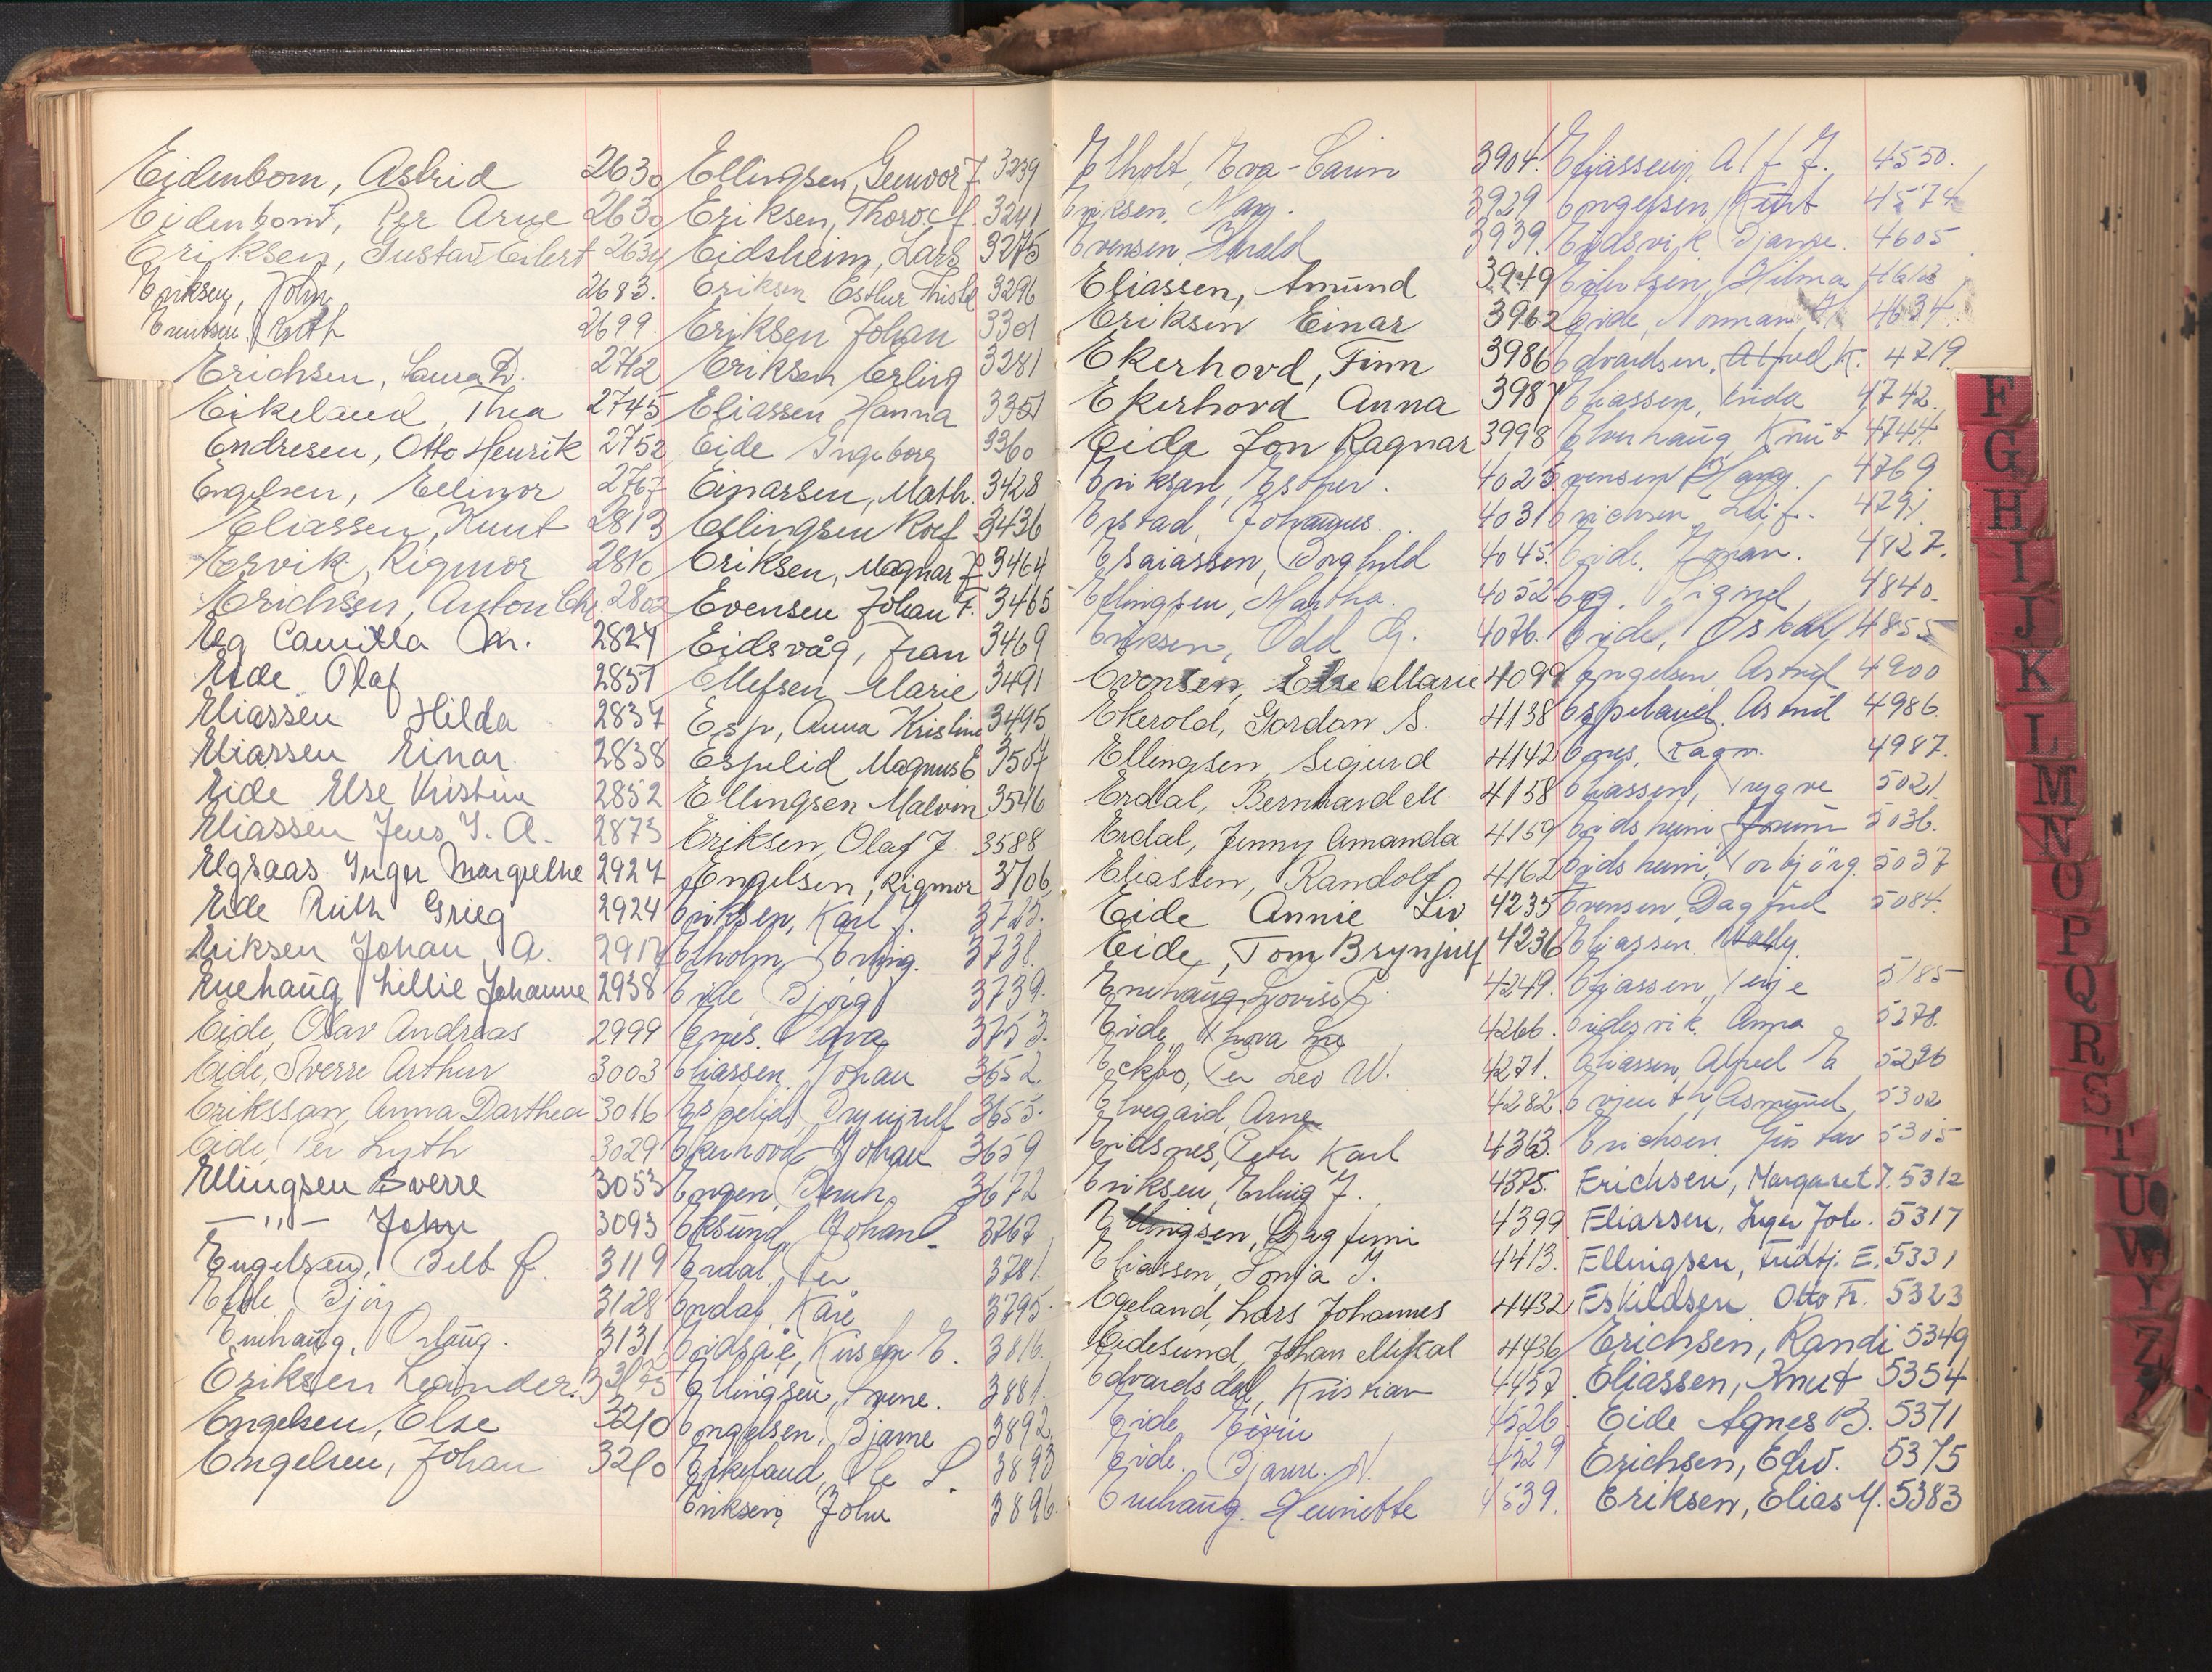 Eidenbom, Astrid 2630
Eidenbom, Per Arne 2630
Eriksen, Gustav Eilert 2634
Eriksen, John 2683.
Ruth 2699.
Erichsen, Laura D. 2712
Eikeland, Thea 2745
Endresen, Otto Henrik 2752
Engelsen, Ellinor 2767
Eliassen, Knut 2813
Ervik, Rigmor 2810
Erichsen, Anton Chr. 2802
Eeg Camilla M. 2824
Eide Olaf 2851
Eliassen Hilda 2837
Eliassen Einar 2838
Eide Else Kristine 2852
Eliassen Jens J. A. 2873
Elgsaas Inger Margrethe 2924
Eide Ruth Grieg 2924
Eriksen Johan A. 2917
Enehaug Lillie Johanne 2938
Eide, Olav Andreas 2999
Eide, Sverre Arthur 3003
Eriksson, Anna Darthea 3016
Eide, Per Lyth 3029
Ellingsen Sverre 3053
— " — John 3093
Engelsen, 3119
Eide Bjørg 3128
Enehaug, 3131
Eriksen Leander.
Engelsen, Else 3210
Engelsen, Johan 3210
Ellingsen, Gunvor J 3239
Eriksen, Thorolf. 3241
Eidsheim, Lars 3275
Eriksen Esther Thistel 3296
Eriksen Johan 3301
Eriksen Erling 3281
Eliassen Hanna 3351
Eide Ingeborg 3360
Einarsen, Math. 3428
Ellingsen Rolf 3436
Eriksen, Magnar J 3464
Evensen Johan F. 3465
Eidsvåg, Fran 3469
Ellefsen Marie 3491
Esp, Anna Kristine 3495
Espelid Magnus E 3507
Ellingsen Malvin 3546
Eriksen, Olaf J 3588
Engelsen, Rigmor 3706
Eriksen, Karl J. 3725.
Elholm, Erling. 3738.
Eide Bjørg 3739.
Enes. Olava 3753.
Eliassen. Johan 3652.
Espelid, Brynjulf 3655.
Ekerhovd Johan 3659
Engen, Bernh. 3672
Eksund, Johan 3767
Erdal Per 3781.
Erdal, Kåre 3795.
Eidsåe, Kirsten E. 3816.
Ellingsen, Irene. 3881.
Engelsen, Bjarne 3892.
Eikeland, Ole S. 3893
Eriksen, John 3896.
Elholt, Eva-Carin 3904.
Eriksen, 3929
Evensen, Harald 3939.
Eliassen, Amund 3949
Eriksen Einar 3962
Ekerhovd, Finn 3986
Ekerhovd Anna 3987
Eide Jon Ragnar 3998
Eriksen, Esther. 4025
Erstad, Johannes. 4031
Esaiassen, Borghild 4045.
Ellingsen, Martha. 4052
Eriksen, Odd G. 4076.
Evensen, Else Marie 4099
Ekerold, Gordon S. 4138
Ellingsen, Sigurd 4142
Erdal, Bernhard M. 4158
Erdal, Jenny Amanda 4159
Eliassen, Randolf 4162
Eide Annie Liv 4235
Eide, Tom Brynjulf 4236
Enehaug Lovise 4249.
Eide, Thora 4266.
Eckbo, Per Leo W. 4271.
Elvegaard, Arne 4282.
Eidsnes, Peter Karl 4363.
Eriksen, Erling J. 4375.
Ellingsen, Dagfinn 4399
Eliassen, Sonja J. 4413.
Egeland, Lars Johannes 4432
Eidesund, Johan Mikal 4436
Edvardsdal, Kristian 4457
Eide Eivin 4526.
Eide. Bjarne. N. 4529
Enehaug. Henriette 4539.
Eliassen, Alf J. 4550.
Engelsen Kurt 4574
Eidsvik Bjarne. 4605
Eilertsen, Hilma 4613
Eide, Norman 4634
Edvardsen, Alfred K. 4719.
Eliassen, Frida 4742.
Elverhaug Knut 4744.
Evensen 4769
Erichsen Leif. 4791
Eide. Johan. 4827.
Eeg. Signed 4840.
Eide, Oskar 4855
Engelsen Astrid 4900
Espeland. Astrid 4986.
Enes, Ragn. 4987.
Eliassen, Trygve 5021.
Eidsheim 5036.
Eidsheim, Torbjörg. 5037
Evensen, Dagfinn 5084.
Eliassen. Wally.
Eliassen, Terje 5185
Eidesvik. Anna 5278.
Eliassen, Alfred E 5296
Evjenth, Asmund 5302
Erichsen. Gustav 5305
Erichsen, Margaret J. 5312
Eliassen, Inger Joh. 5317
Ellingsen, Fridtj. E. 5331
Eskildsen Otto Fr. 5323
Erichsen, Randi 5349
Eliassen, Knut 5354
Eide Agnes B. 5371
Erichsen, Edv. 5375
Eriksen, Elias M. 5383
F
G
H
I
J
K
L
M
N
O
P
Q
R
S
T
U
W
Y
Z